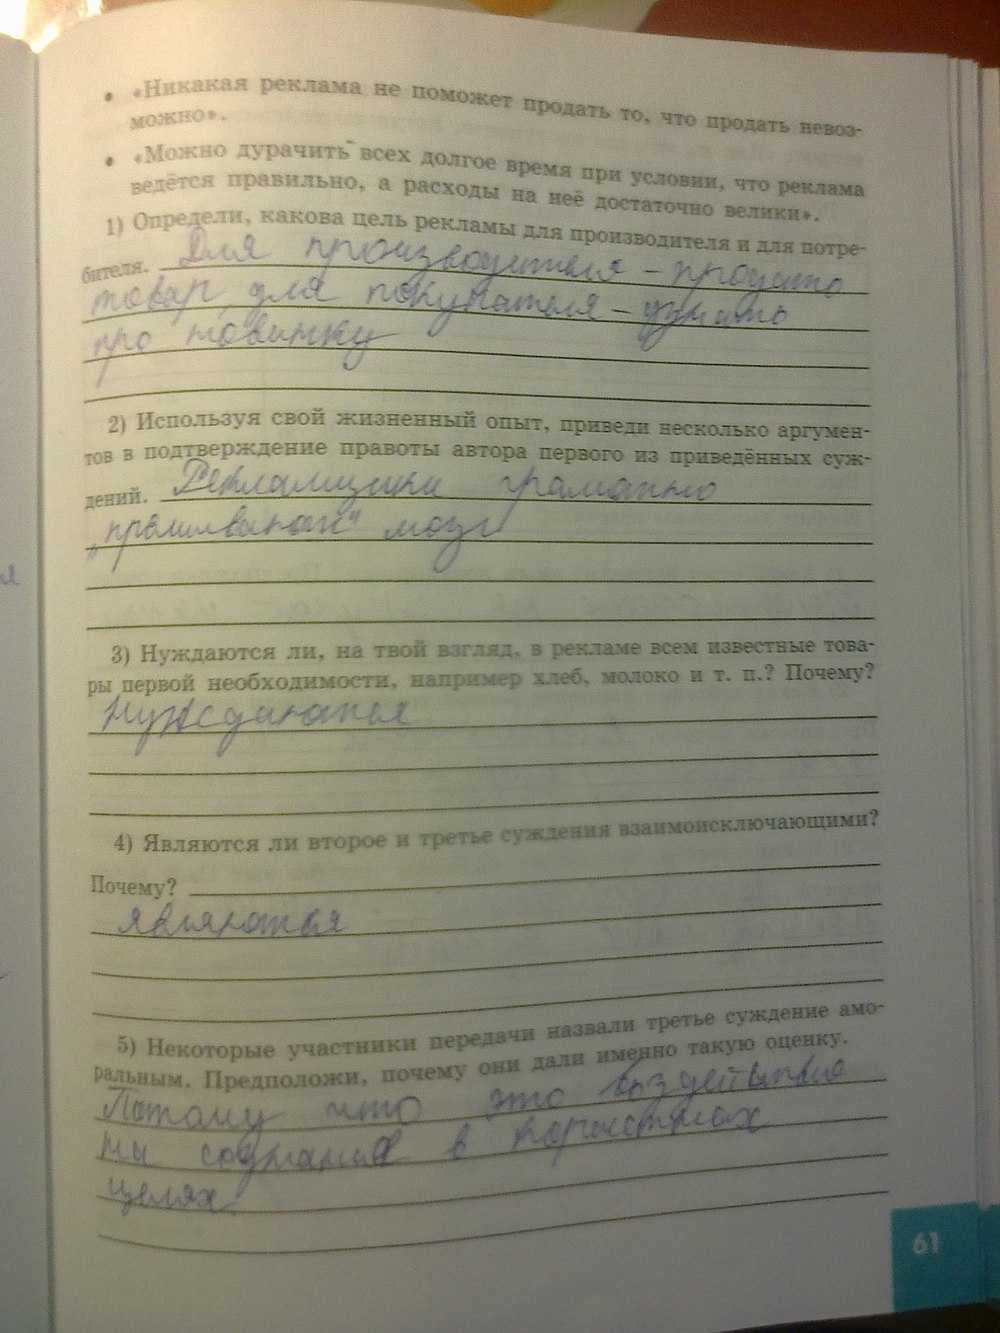 • «Никакая реклама не поможет продать то, что продать невоз-
можно».
• «Можно дурачить всех долгое время при условии, что реклама
ведётся правильно, а расходы на неё достаточно велики».
1) Определи, какова цель рекламы для производителя и для потре-
бителя. Для производителя – продать
товар, для покупателя – узнать
про новинку
2) Используя свой жизненный опыт, приведи несколько аргумен-
тов в подтверждение правоты автора первого из приведённых суж-
дений. Рекламщики грамотно
„промывают" мозг
3) Нуждаются ли, на твой взгляд, в рекламе всем известные това-
ры первой необходимости, например хлеб, молоко и т. п.? Почему?
Нуждаются
4) Являются ли второе и третье суждения взаимоисключающими?
Почему?
являются
5) Некоторые участники передачи назвали третье суждение амо-
ральным. Предположи, почему они дали именно такую оценку.
Потому что это воздействие
на сознание в корыстных
целях
61